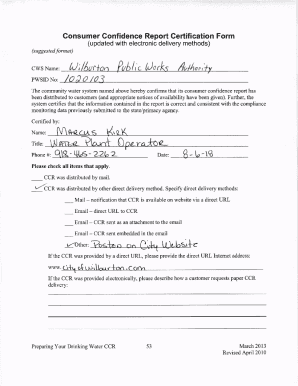 Consumer Confidence Report Certification Form
(updated with electronic delivery methods)
(suggested format)
CWS Name: Wilburton Public Works Authority
PWSID No: 1020103
The community water system named above hereby confirms that its consumer confidence report has
been distributed to customers (and appropriate notices of availability have been given). Further, the
system certifies that the information contained in the report is correct and consistent with the compliance
monitoring data previously submitted to the state/primacy agency.
Certified by:
Name: Marcus Kirk
Title: Water Plant Operator
Phone #: 918-465-2262 Date: 8-6-18
Please check all items that apply.
CCR was distributed by mail.
✓ CCR was distributed by other direct delivery method. Specify direct delivery methods:
Mail – notification that CCR is available on website via a direct URL
Email – direct URL to CCR
Email – CCR sent as an attachment to the email
Email – CCR sent embedded in the email
✓ Other: Posted on City Website
If the CCR was provided by a direct URL, please provide the direct URL Internet address:
www.cityofwilburton.com
If the CCR was provided electronically, please describe how a customer requests paper CCR
delivery:
Preparing Your Drinking Water CCR 53 March 2013
Revised April 2010